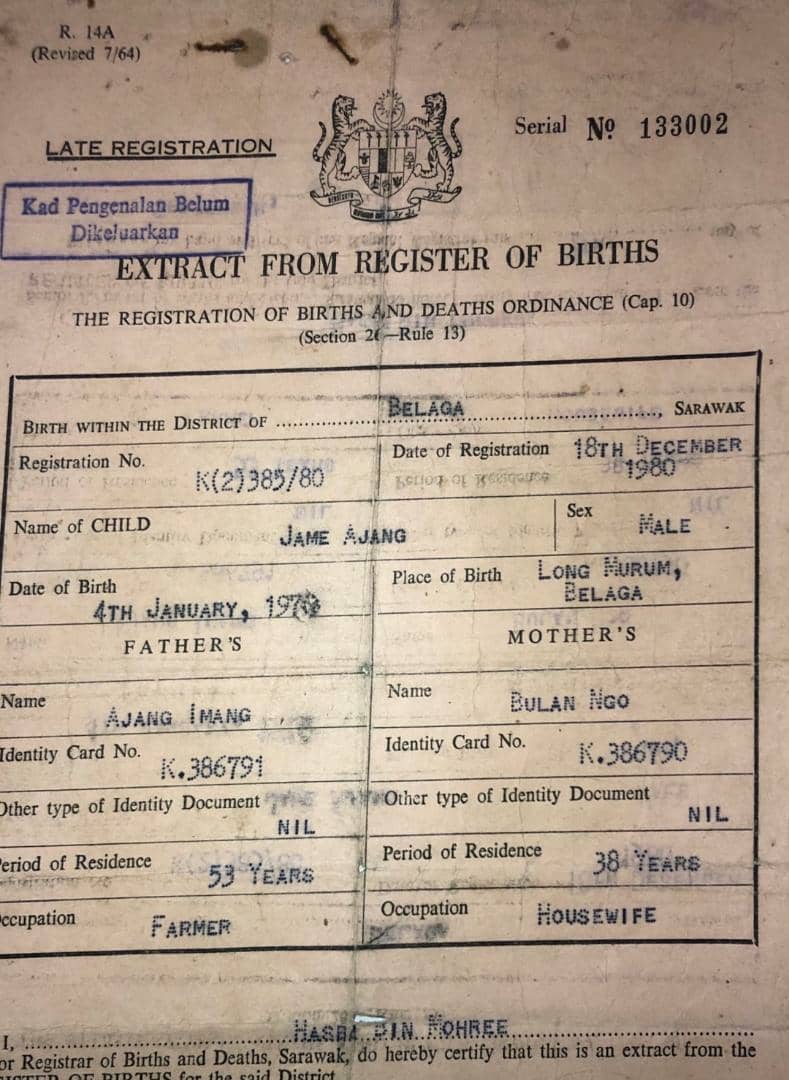 R. 14A
(Revised 7/64)
Serial № 133002
LATE REGISTRATION
Kad Pengenalan Belum
Dikeluarkan
EXTRACT FROM REGISTER OF BIRTHS
THE REGISTRATION OF BIRTHS AND DEATHS ORDINANCE (Cap. 10)
(Section 26—Rule 13)
BIRTH WITHIN THE DISTRICT OF BELAGA, SARAWAK
Registration No. K(2)385/80
Date of Registration 18TH DECEMBER
1980
Name of CHILD JAME AJANG
Sex MALE
Date of Birth
4TH JANUARY,
Place of Birth LONG MURUM,
BELAGA
FATHER'S
MOTHER'S
Name AJANG IMANG
Name BULAN NGO
Identity Card No. K.386791
Identity Card No. K.386790
Other type of Identity Document
NIL
Other type of Identity Document
NIL
eriod of Residence 53 YEARS
Period of Residence 38 YEARS
ccupation FARMER
Occupation HOUSEWIFE
I, BIN MOHREE
or Registrar of Births and Deaths, Sarawak, do hereby certify that this is an extract from the
OF BIRTHS for the said District